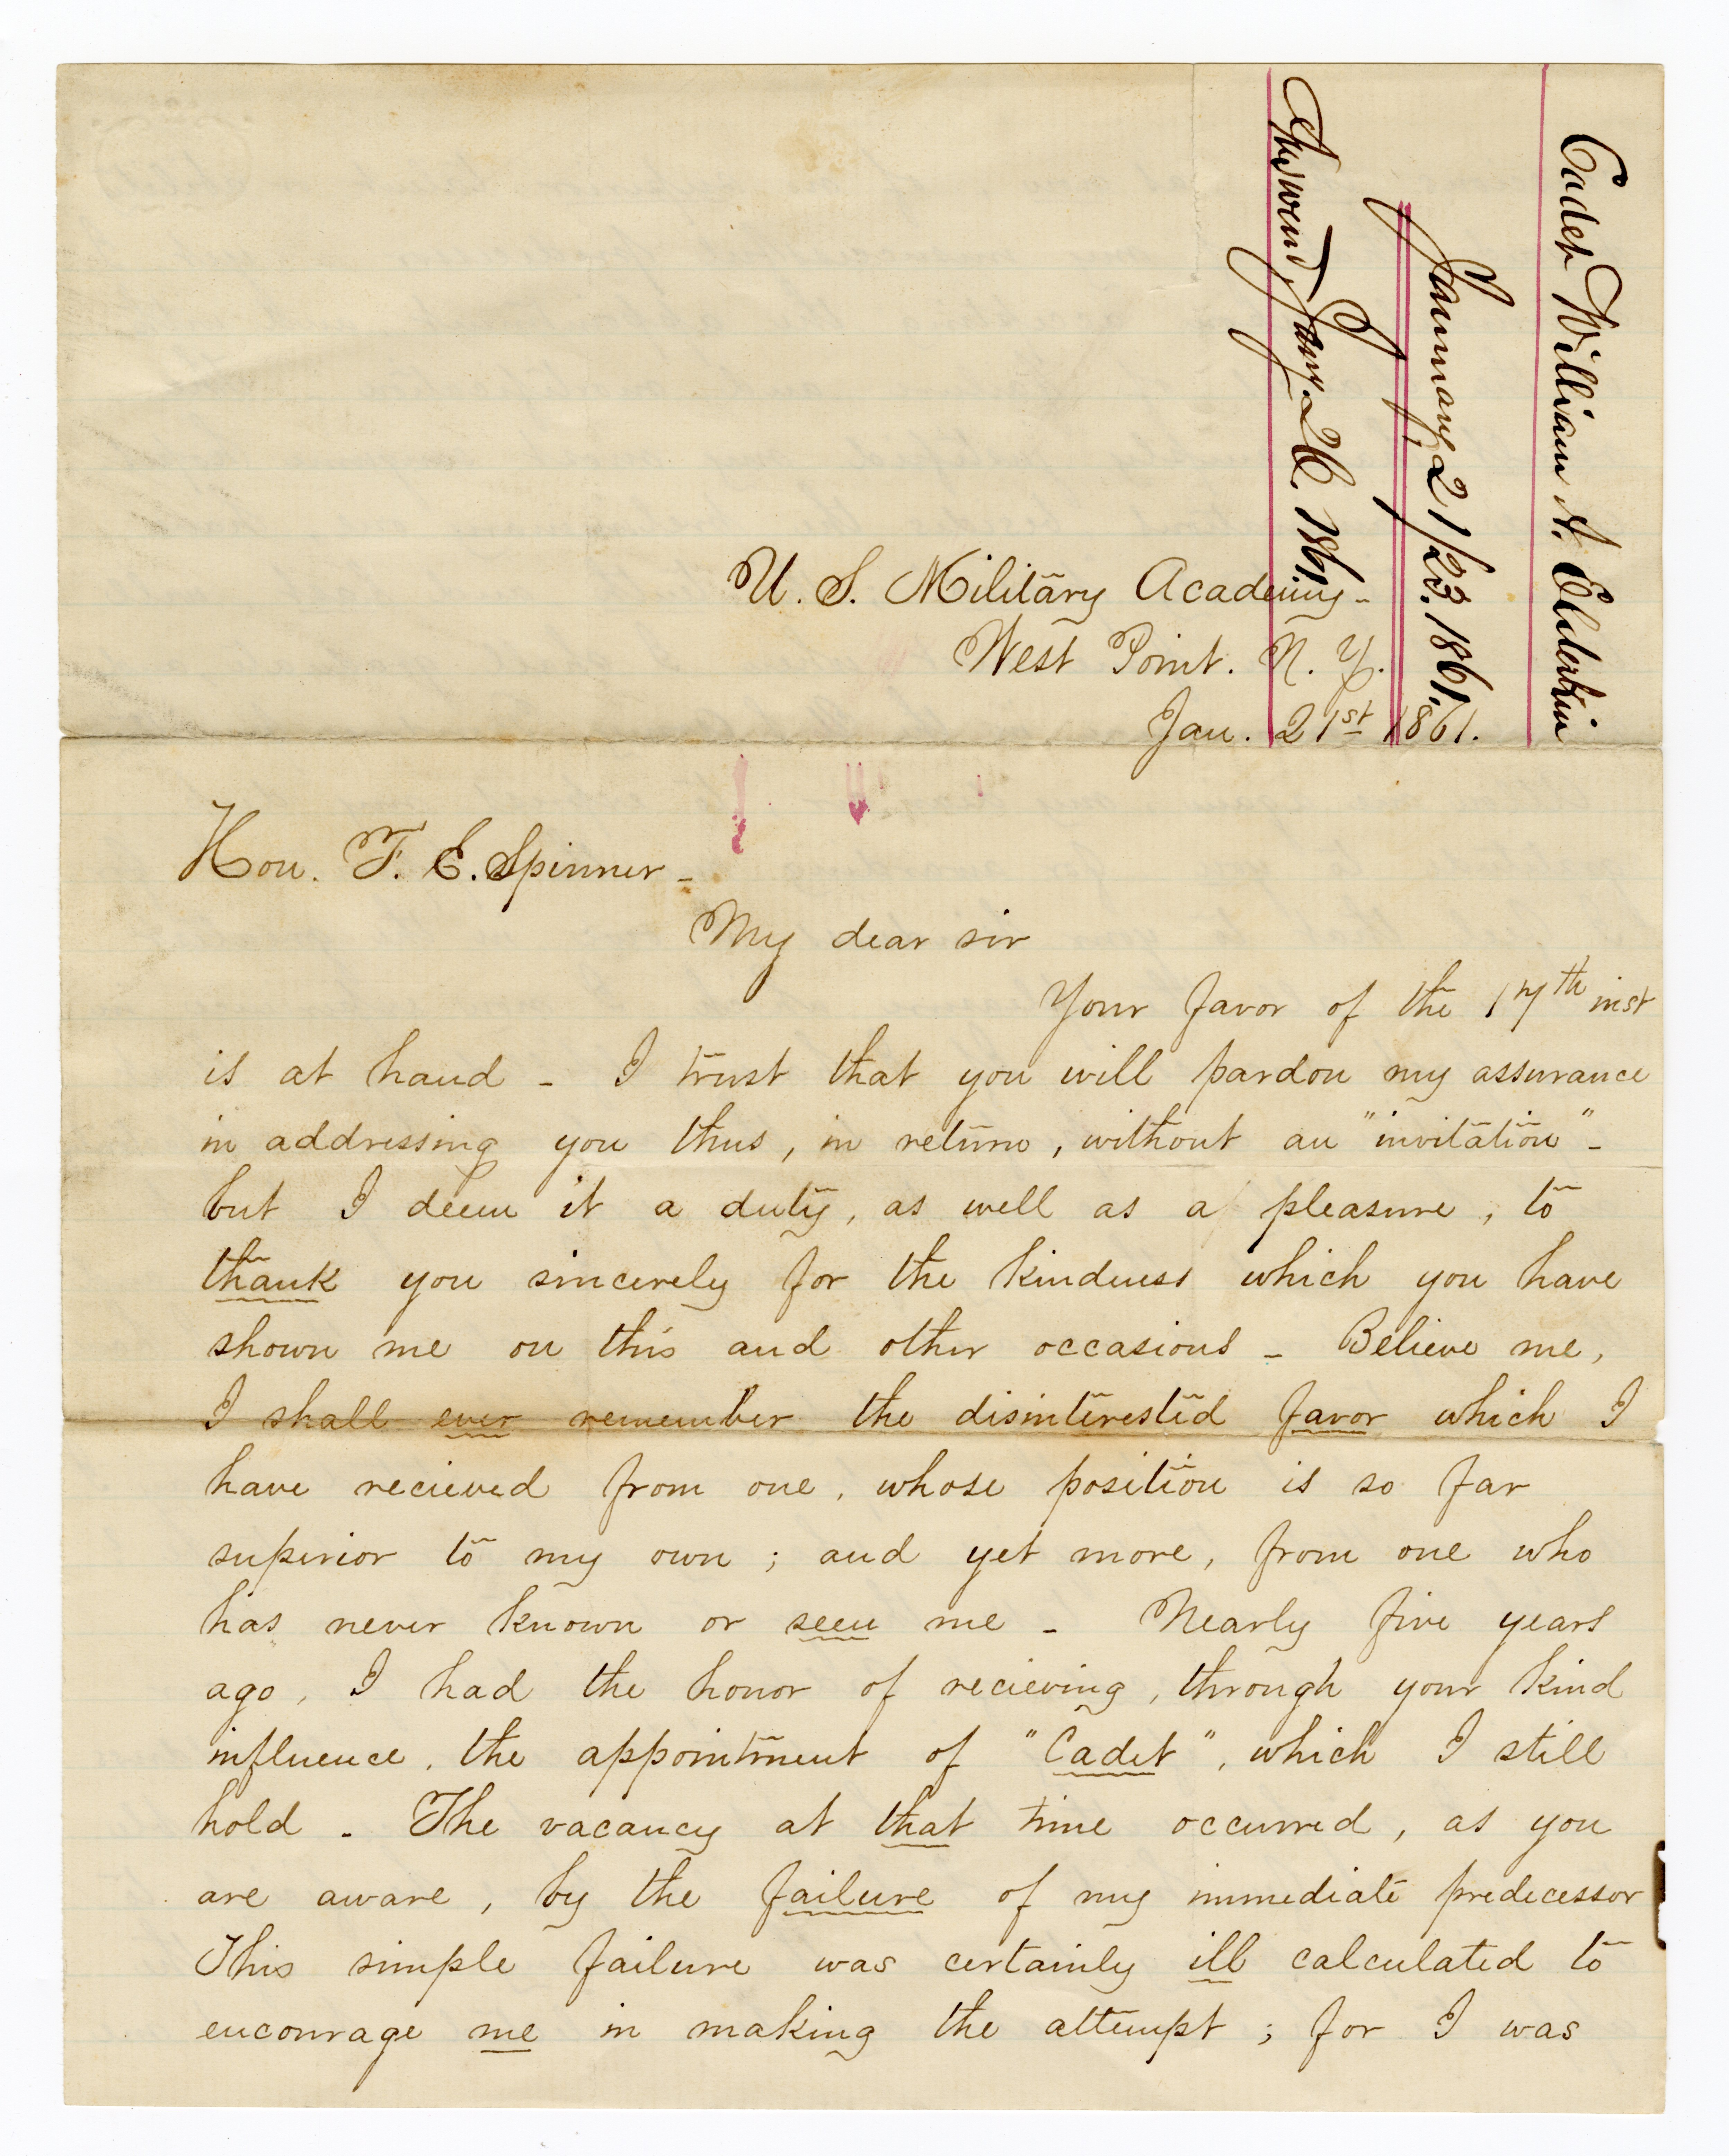 Cadet William A. Elderkin
January 21/23. 1861.
Answered Jany. 26. 1861.
U. S. Military Academy -
West Point. N. Y.
Jan. 21st 1861.
Hon. F. E. Spinner -
My dear sir
Your favor of the 17th inst
is at hand - I trust that you will pardon my assurance
in addressing you thus, in return, without an "invitation" -
but I deem it a duty, as well as a pleasure, to
thank you sincerely for the kindness which you have
shown me on this and other occasions - Believe me,
I shall ever remember the disinterested favor which I
have recieved from one, whose position is so far
superior to my own; and yet more, from one who
has never known or seen me - Nearly five years
ago, I had the honor of recieving, through your kind
influence, the appointment of "Cadet", which I still
hold - The vacancy at that time occurred, as you
are aware, by the failure of my immediate predecessor
This simple failure was certainly ill calculated to
encourage me in making the attempt; for I was